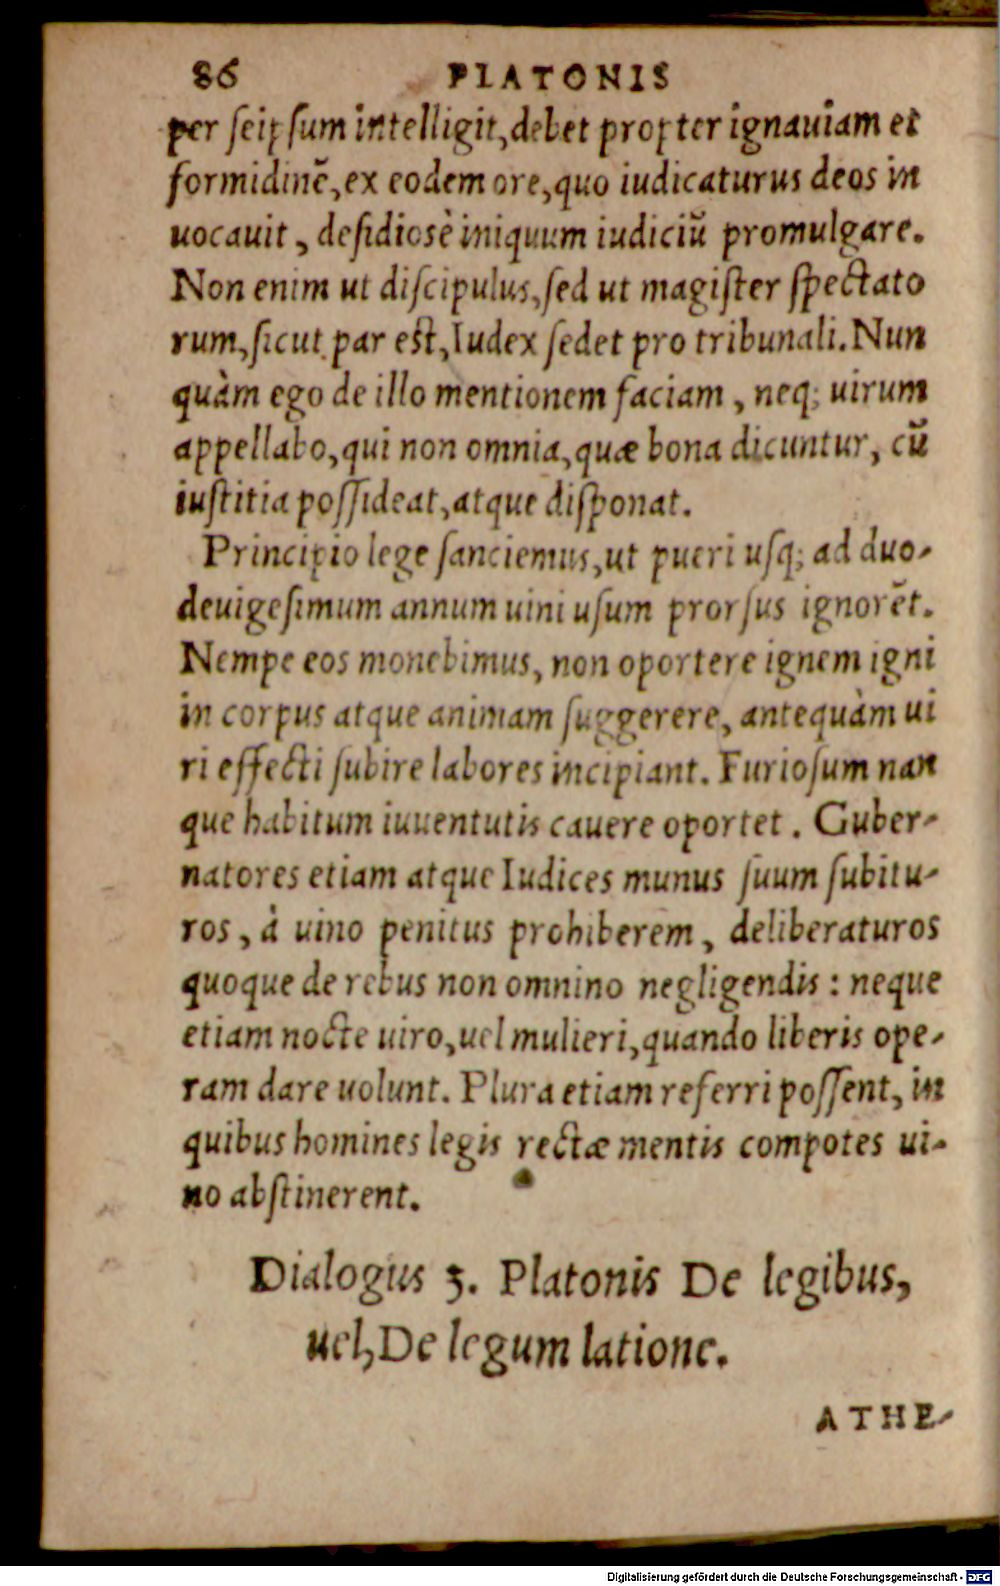 86 PLATONIS
per ſeipſum intelligit, debet propter ignauiam et
formidinē, ex eodem ore, quo iudicaturus deos in
uocauit, deſidiosè iniquum iudiciū promulgare.
Non enim ut diſcipulus, ſed ut magiſter ſpectato
rum, ſicut par eſt, Iudex ſedet pro tribunali. Nun
quàm ego de illo mentionem faciam, neq; uirum
appellabo, qui non omnia, quæ bona dicuntur, cū
iuſtitia poſſideat, atque diſponat.
Principio lege ſanciemus, ut pueri uſq; ad duo-
deuigeſimum annum uini uſum prorſus ignorēt.
Nempe eos monebimus, non oportere ignem igni
in corpus atque animam ſuggerere, antequàm ui
ri effecti ſubire labores incipiant. Furioſum nan
que habitum iuuentutis cauere oportet. Guber-
natores etiam atque Iudices munus ſuum ſubitu-
ros, à uino penitus prohiberem, deliberaturos
quoque de rebus non omnino negligendis: neque
etiam nocte uiro, uel mulieri, quando liberis ope-
ram dare uolunt. Plura etiam referri poſſent, in
quibus homines legis rectæ mentis compotes ui-
no abſtinerent.
Dialogus 3. Platonis De legibus,
uel, De legum latione.
ATHE-
Digitalisierung gefördert durch die Deutsche Forschungsgemeinschaft - DFG